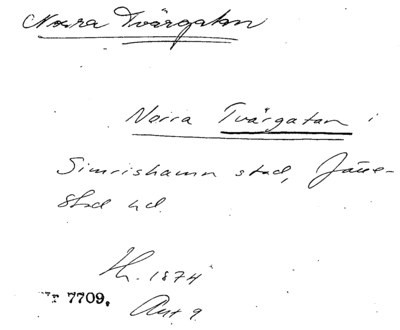 Norra Tvärgatan
Norra Tvärgatan i
Simrishamn stad, Järre-
stad hd.
Th. 1874
Nr 7709.
Akt 9